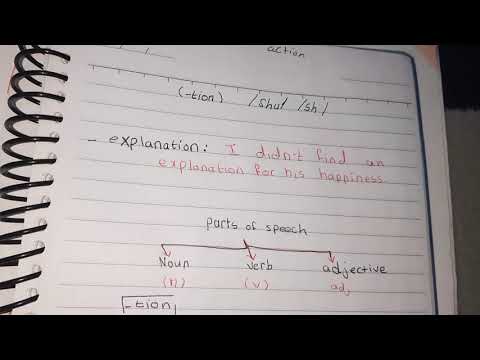 action
(-tion) /shu/ /sh/
- explanation: I didn't find an
explanation for his happiness
parts of speech
Noun verb adjective
(n) (v) adj
-tion